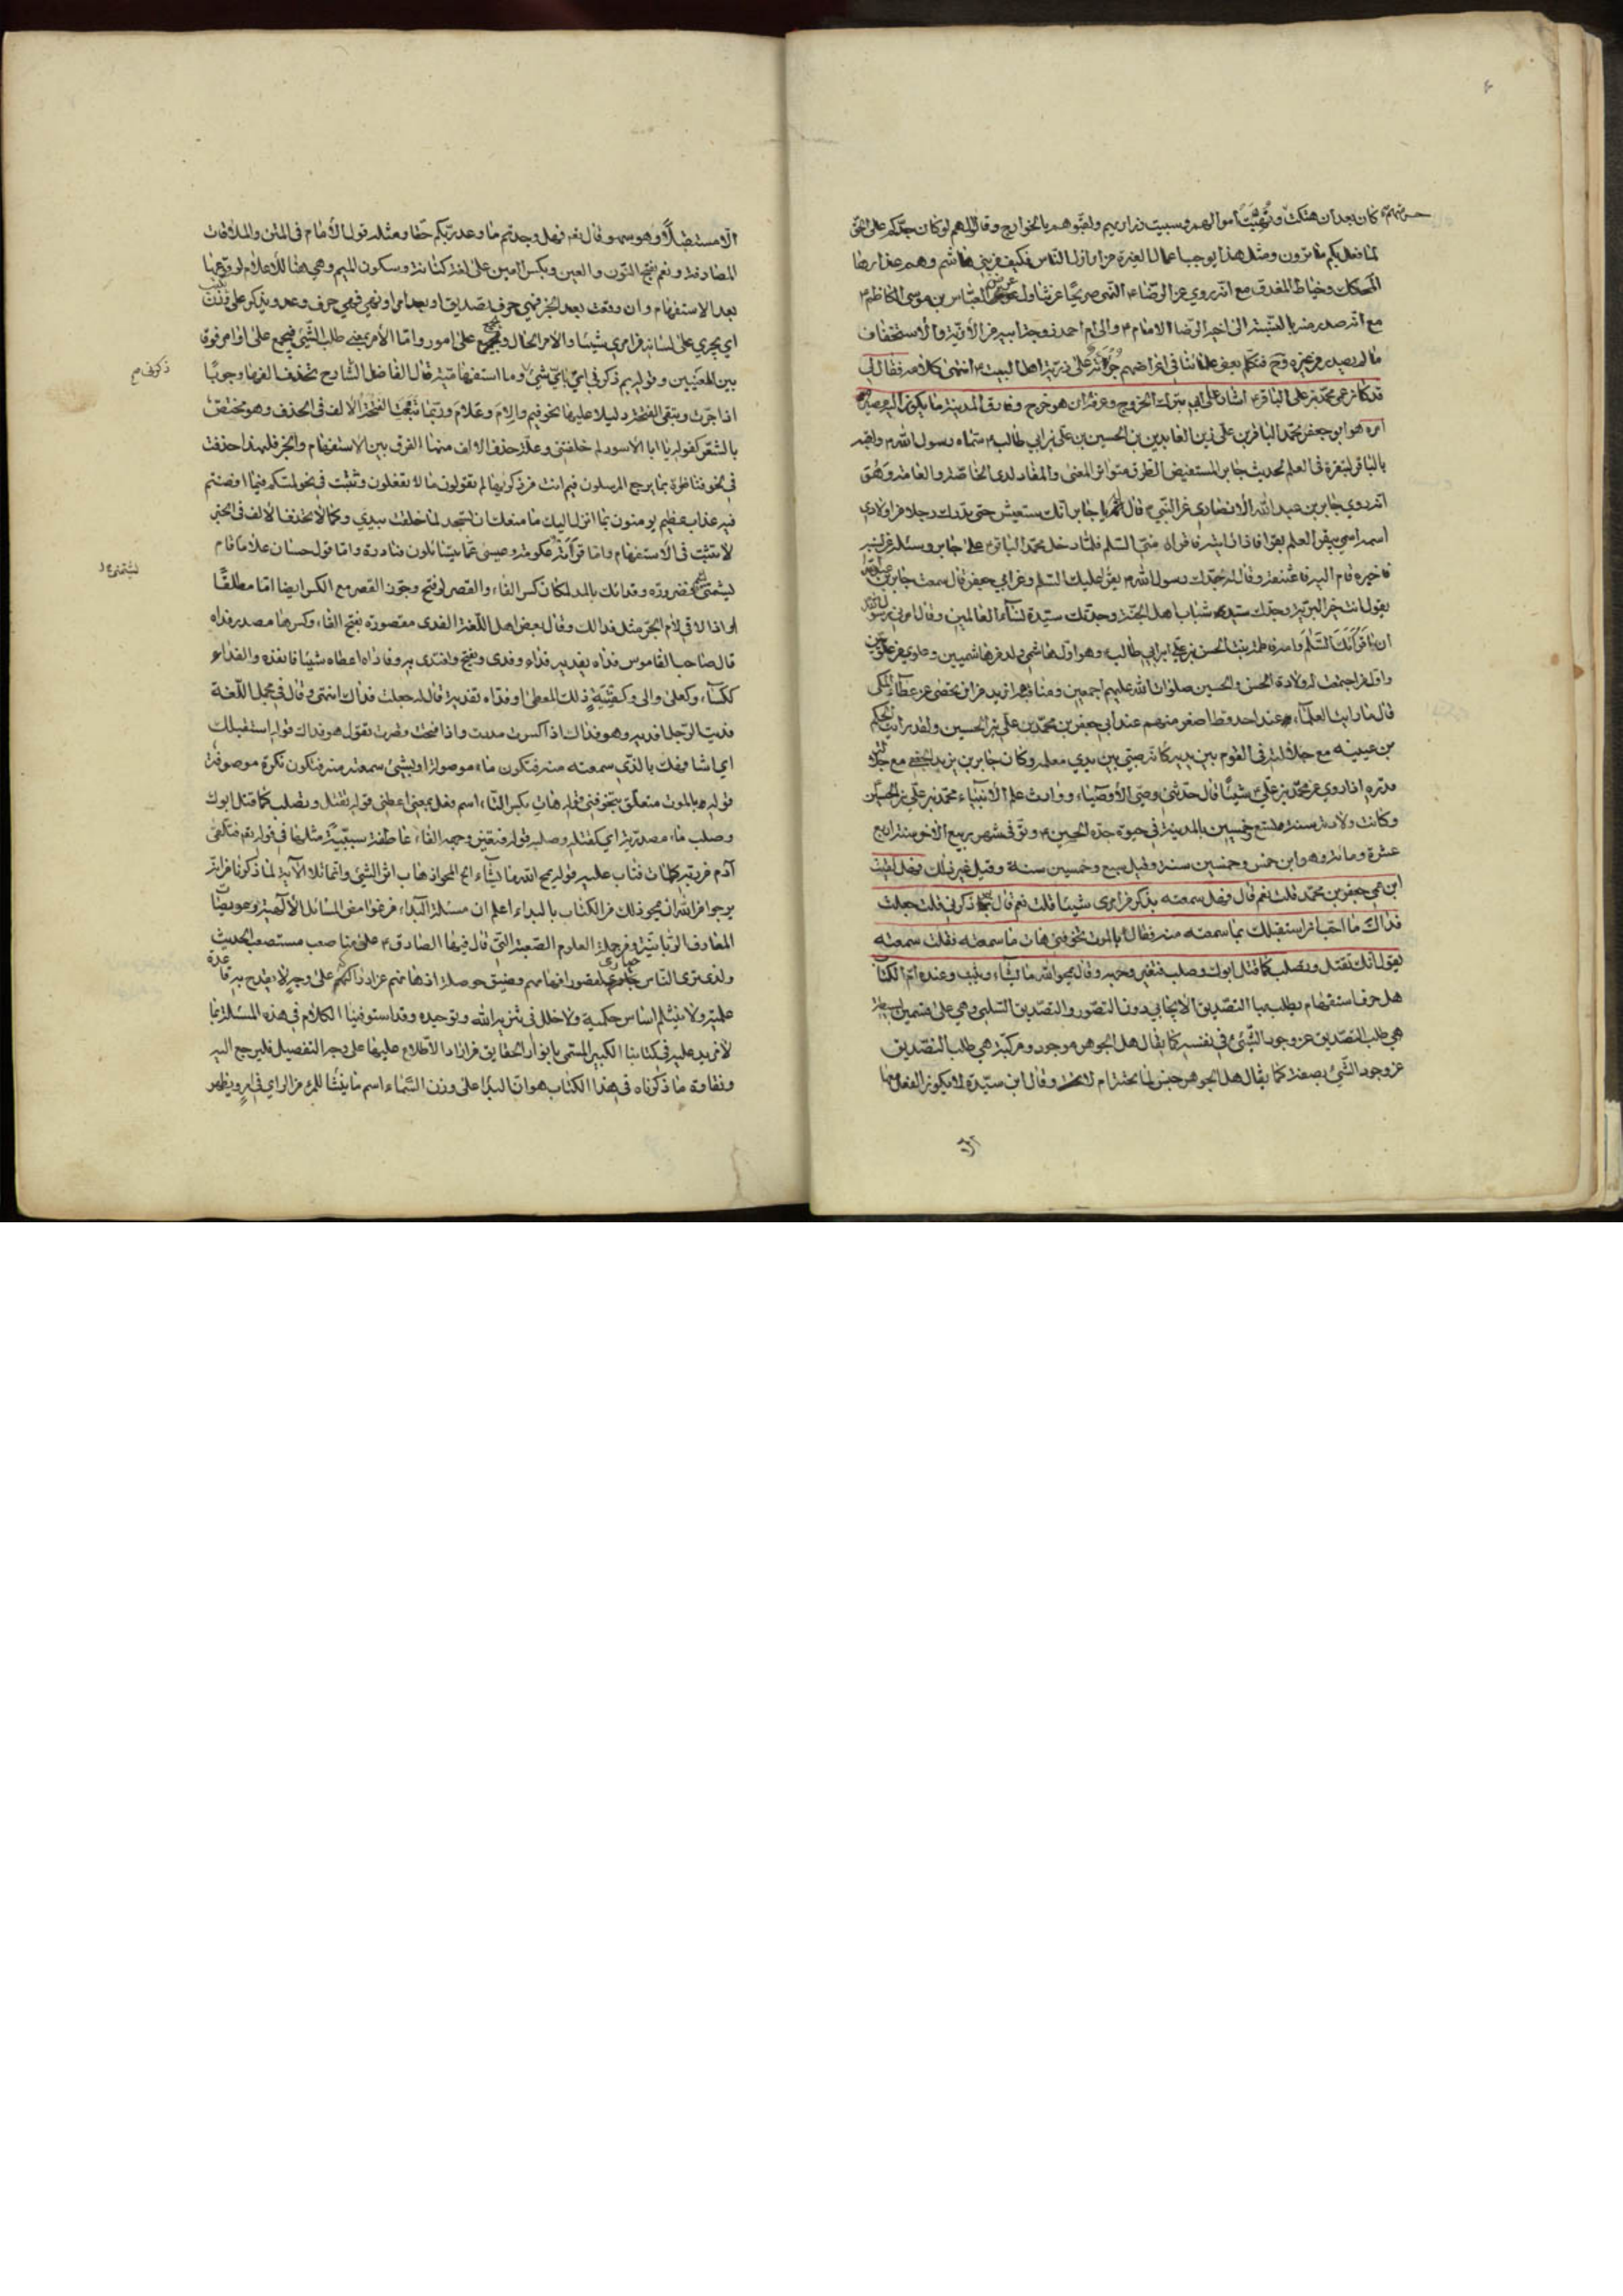 كان بعد ان هتكت ونهبت اموالهم وسبيت ذراريهم ولقبوهم بالخوارج وقال اللهم لو كان جدكم على الحق
لما فعل بكم ما ترون ومثل هذا يوجب اعمال الغيرة من اراذل الناس فكيف من بني هاشم وهم عذارها
المحكك وخياط المغدق مع انه روي عن الرضا ع النهي صريحا عن تناول عرض العباس بن موسى الكاظم ع
مع انه صدر منه بالنسبة الى اخيه الرضا الامام ع والى ام احمد زوجة ابيه من الأذية والاستخفاف
ما لم يصدر من غيره فتكلم بعض علمائنا في اغراضهم جرأة على ذرية اهل البيت ع انتهى كلامه فقال لي
قد كان عمي محمد بن علي الباقر ع اشار على ابي بترك الخروج وعرفه ان هو خرج وفارق المدينة ما يكون اليه مصير
امره هو ابو جعفر محمد الباقر بن علي زين العابدين بن الحسين بن علي بن ابي طالب ع سماه رسول الله ص ولقبه
بالباقر لتبقره في العلم لحديث جابر المستفيض الطرق متواتر المعنى والمفاد لدى الخاصة والعامة وهو
انه روي جابر بن عبد الله الأنصاري عن النبي ص قال له يا جابر انك ستعيش حتى تدرك رجلا من اولادي
اسمه اسمي يبقر العلم بقرا فاذا لقيته فاقرأه مني السلم فلما دخل محمد الباقر ع على جابر وسئله عن نسبه
فاخبره قام اليه فاعتنقه وقال له جدك رسول الله ص يقرأ عليك السلم وعن ابي جعفر قال سمعت جابر بن عبد الله
يقول انت خير البرية وجدك سيد شباب اهل الجنة وجدتك سيدة نساء العالمين وقال امرني رسول الله
ان اقرأك السلم وامه فاطمة بنت الحسن بن علي بن ابي طالب ع وهو اول هاشمي ولد من هاشميين وعلوي من علويين
واول من اجتمعت له ولادة الحسن والحسين صلوات الله عليهم اجمعين ومناقبه ازيد من ان تحصى عن عطاء المكي
قال ما رايت العلماء عند احد قط اصغر منهم عند ابي جعفر بن محمد بن علي بن الحسين ولقد رايت الحكم
بن عيينه مع جلالته في القوم بين يديه كانه صبي بين يدي معلمه وكان جابر بن يزيد الجعفي مع جلالة
قدره اذا روي عن محمد بن علي شيئا قال حدثني وصي الأوصياء ووارث علم الأنبياء محمد بن علي بن الحسين
وكانت ولادته سنة تسع وخمسين بالمدينة في حيوة جده الحسين ع وتوفي شهر ربيع الآخر سنة اربع
عشرة ومائة وهو ابن خمس وخمسين سنة وقيل سبع وخمسين سنة وقيل غير ذلك فهل لقيت
ابن عمي جعفر بن محمد قلت نعم قال فهل سمعته يذكر من امري شيئا قلت نعم قال بم ذكرني قلت جعلت
فداك ما احب ان استقبلك بما سمعته منه فقال أبالموت تخوفني هات ما سمعته فقلت سمعته
يقول انك تقتل وتصلب كما قتل ابوك وصلب فتغير وجهه وقال يمحو الله ما يشاء ويثبت وعنده ام الكتاب
هل حرف استفهام يطلب بها التصديق الأيجابي دون التصور والتصديق السلبي وهي على قسمين بسيطة
هي طلب التصديق عن وجود الشيئ في نفسه كما يقال هل الجوهر موجود ومركبة هي طلب التصديق
عن وجود الشيئ بصفة كما يقال هل الجوهر جنس لما تحته ام لا وقال ابن سيدة لا يكون الفعل معها
الا مستقبلا وهو سهو وقال تع فهل وجدتم ما وعد ربكم حقا ومثله قول الأمام في المتن والملاقات
المصادفة ونعم بفتح النون والعين وبكسر العين على لغة كنانة وسكون الميم وهي هنا للأعلام لوقوعها
بعد الاستفهام وان وقعت بعد الخبر فهي حرف تصديق او بعد امر او نهي فهي حرف وعد ويذكر على
اي يجري على لسانه من امري شيئا والأمر الحال ويجمع على امور واما الأمر بمعنى طلب الشيئ فيجمع على اوامر فرقا
بين المعنيين وقوله بم ذكرني اي باي شيئ وما استفهامية قال الفاضل الشارح تحذف الفها وجوبا
اذا جرت وتبقى الفتحة دليلا عليها نحو فيم والام وعلام وربما تبعت الفتحة الألف في الحذف وهو مختص
بالشعر كقوله يا ابا الاسود لم خلفتني وعلة حذف الالف منها الفرق بين الاستفهام والخبر فلهذا حذفت
في نحو فناظرة بم يرجع المرسلون فيم انت من ذكريها لم تقولون ما لا تفعلون وثبتت في نحو لمسكم فيما افضتم
فيه عذاب عظيم يومنون بما انزل اليك ما منعك ان تسجد لما خلقت بيدي وكما لا تحذف الالف في الخبر
لا تثبت في الأستفهام واما قرأءة عكرمة وعيسى عما يتسائلون فنادرة واما قول حسان علاما قام
يشتمني فضرورة وفدائك بالمد لمكان كسر الفاء والقصر لو فتح وجوز القصر مع الكسر ايضا اما مطلقا
او اذا لاقي لأم الجر مثل فدا لك وقال بعض اهل اللغة الفدى مقصورة بفتح الفاء وكسرها مصدر فداه
قال صاحب القاموس فداه يفديه فداء وفدى ويفتح وافتدى به وفاداه اعطاه شيئا فانقذه والفداء
ككساء وكعلى والى وكفتية ذلك المعطى وفداه تفدية قال له جعلت فداك انتهى وقال في مجمل اللغة
فديت الرجل افديه وهو فداك اذ اكسرت مددت واذا فتحت قصرت تقول هو فداك قوله استقبلك
اي اشافهك بالذي سمعته منه فتكون ماء موصولة او بشيئ سمعته منه فتكون نكرة موصوفة
قوله ابالموت متعلق بتخوفني قوله هات بكسر التاء اسم فعل بمعنى اعطني قوله تقتل وتصلب كما قتل ابوك
وصلب ماء مصدرية اي كقتله وصلبه قوله فتغير وجهه الفاء عاطفة سببية مثلها في قوله تع فتلقى
آدم من ربه كلمات فتاب عليه قوله يمح الله ما يشاء الخ المحو اذهاب اثر الشيئ وانما تلا الآية لما ذكرنا من انه
يرجوا من الله ان يمحو ذلك من الكتاب بالبداء اعلم ان مسئلة البداء من غوامض المسائل الألهية وعويصات
المعارف الربانية ومن جملة العلوم الصعبة التي قال فيها الصادق ع علمنا صعب مستصعب الحديث
ولذى ترى الناس حيارى لقصور افهامهم وضيق حوصلة اذهانهم عن ادراكهم على وجه لا يقدح به قاعدة
علمية ولا ينثلم اساس حكمية ولا خلل في تنزيه الله وتوحيده وقد استوفينا الكلام في هذه المسئلة بما
لا مزيد عليه في كتابنا الكبير المسمى بانوار الحقايق من اراد الأطلاع عليها على وجه التفصيل فليرجع اليه
ونقاوة ما ذكرناه في هذا الكتاب هو ان البدا على وزن السماء اسم ما ينشا للمرء من الراي في امر ويظهر